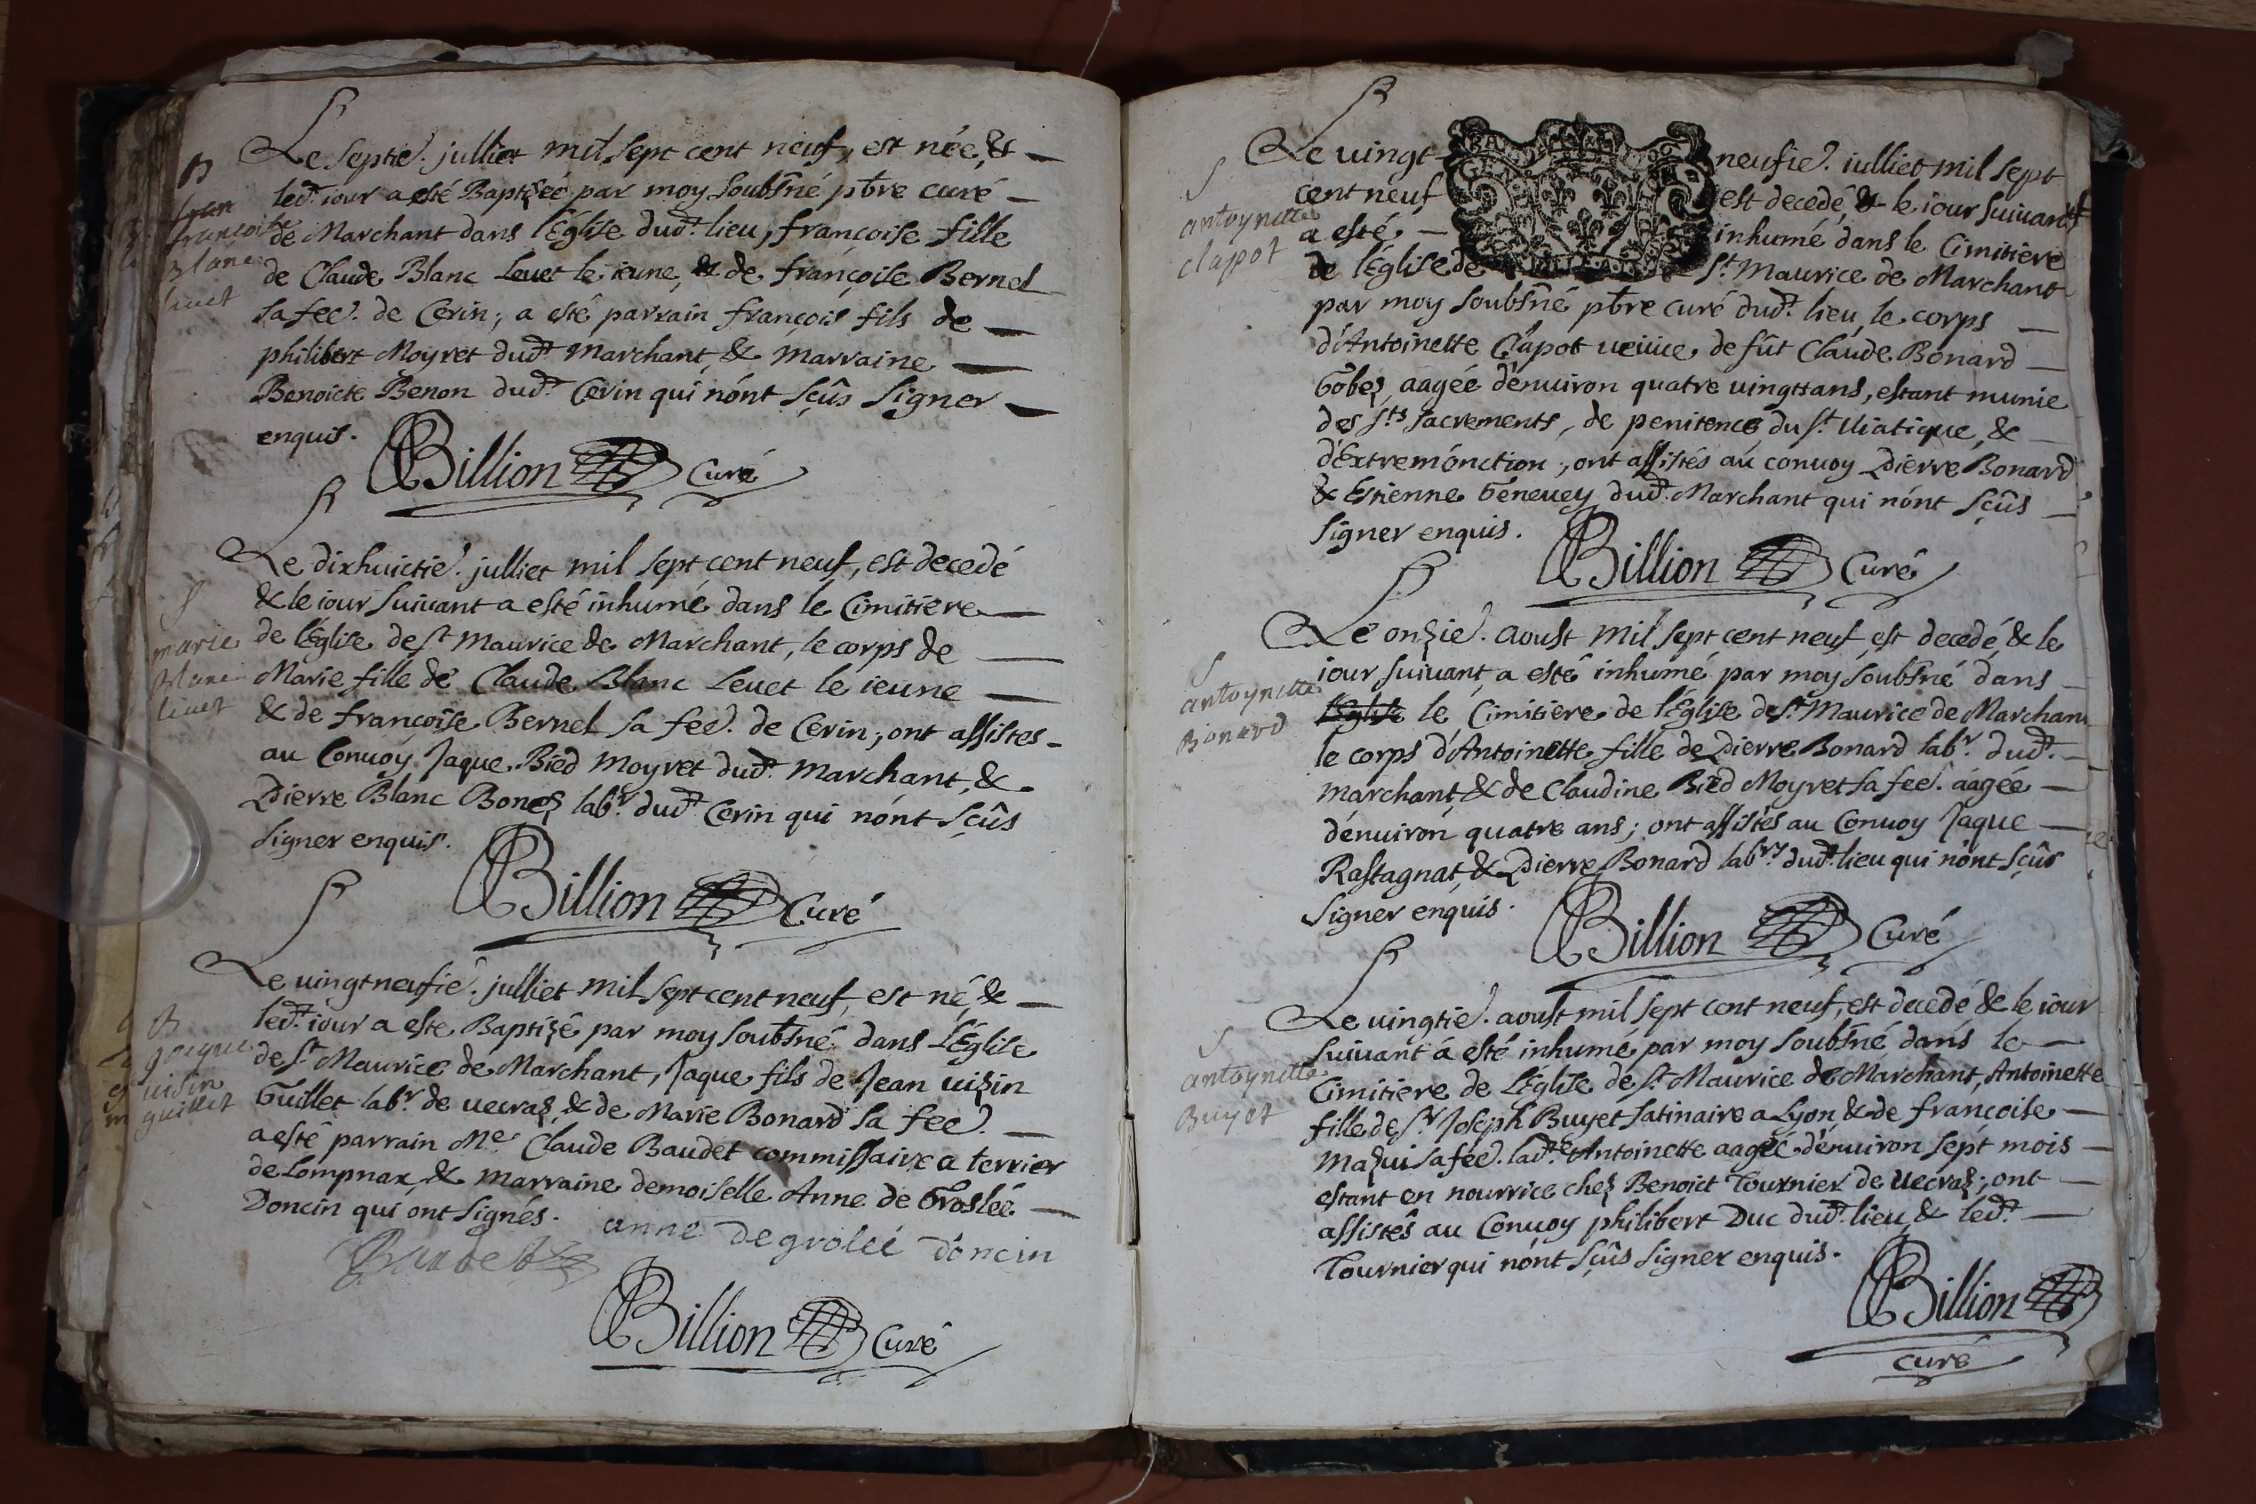 B
françoise
Blanc
levet
Le septie. julliet mil sept cent neuf, est née, &
led.t iour a esté Baptizéé par moy soubsné pbre curé
de Marchant dans l'Église dud.t lieu, françoise fille
de Claude Blanc Levet le ieune, & de françoise Bernel
sa fee. de Cerin; a esté parrain françois fils de
philibert Moyret dud.t Marchant, & marraine
Benoicte Benon dud.t Cerin qui n'ont sçûs signer
enquis.
Billion Curé
S
marie
Blanc
levet
Le dixhuictie. julliet mil sept cent neuf, est decedé
& le iour suivant a esté inhumé dans le Cimitiere
de l'Église de st Maurice de Marchant, le corps de
Marie fille de Claude Blanc Levet le ieune
& de françoise Bernel sa fee. de Cerin; ont assistes
au Convoy Jaque Bied Moyret dud.t marchant, &
Pierre Blanc Bonez labr. dud.t Cerin qui n'ont sçûs
signer enquis.
Billion Curé
B
Jacque
visin
guillet
Le vingtneufie. julliet mil sept cent neuf, est né, &
led.t iour a este Baptizé par moy soubsné dans L'Église
de st Maurice de Marchant, Jaque fils de Jean vizin
Guillet labr. de vecraz, & de Marie Bonard sa fee.
a esté parrain Me Claude Baudet commissaire a terrier
de Lompnax, & marraine demoiselle Anne de Groslée
Doncin qui ont signés.
anne degroleé doncin
Baudet
Billion Curé
S
antoynette
clapot
Le vingt neufie. iulliet mil sept
cent neuf est decedé, & le iour suivant
a esté inhumé dans le Cimitiere
de l'Église de st Maurice de Marchant
par moy soubsné pbre curé dud.t lieu, le corps
d'Antoinette Clapot veuve de fût Claude Bonard
Gobez, aagéé d'enviiron quatre vingts ans, estant munie
des sts sacrements, de penitence, du st Viatique, &
d'Extremonction; ont assistés au convoy Pierre Bonard
& Estienne Genevey dud.t Marchant qui n'ont sçûs
signer enquis.
Billion Curé
S
antoynette
Bonard
Le onzie. aoust mil sept cent neuf est decedé, & le
iour suivant a esté inhumé par moy soubsné dans
l'Église le Cimitiere de l'Église de st Maurice de Marchant
le corps d'Antoinette fille de Pierre Bonard labr. dud.t
marchant, & de Claudine Bied Moyret sa fee. aagéé
d'environ quatre ans; ont assistés au Convoy Jaque
Rastagnat, & Pierre Bonard labrs dud.t lieu qui n'ont sçûs
signer enquis.
Billion Curé
S
antoynette
Buyet
Le vingtie. aoust mil sept cent neuf, est decedé & le iour
suivant a esté inhumé par moy soubsné dans le
Cimitiere de L'Église de st Maurice de Marchant, Antoinette
fille de sr Joseph Buyet satinaire a Lyon, & de françoise
Mazui sa fee. lad.te Antoinette aagéé d'environ sept mois
estant en nourrice chez Benoict Tournier de vecraz; ont
assistés au Convoy philibert Duc dud.t lieu, & led.t
Tournier qui n'ont sçûs signer enquis.
Billion
curé